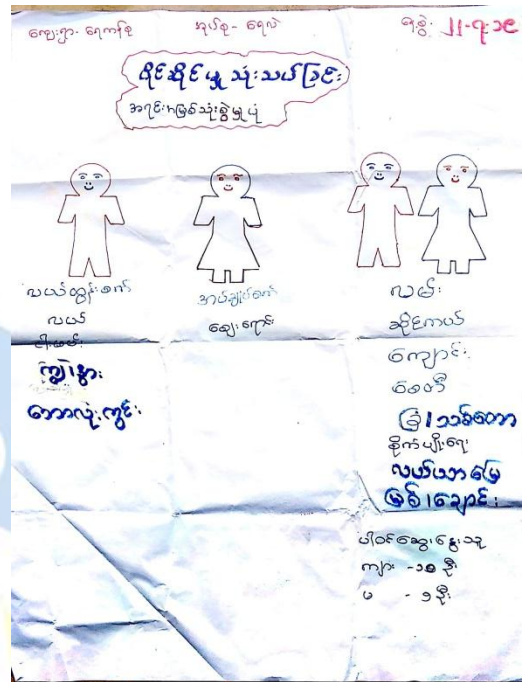 ကျေးရွာ- ရေကန်စု
အုပ်စု- ရေလဲ
ရက်စွဲ- ၂၂-၇-၁၉
ပိုင်ဆိုင်မှု သုံးသပ်ခြင်း
အရင်းအမြစ်သုံးစွဲမှုပုံ
လယ်ထွန်စက်
လယ်
ငါးဖမ်း
ကျွဲ၊နွား
ဘောလုံးကွင်း
အပ်ချုပ်စက်
ဈေးရောင်း
လမ်း
ဆိုင်ကယ်
ကျောင်း
စေတီ
ခြံ၊သစ်တော
စိုက်ပျိုးရေး
လယ်ယာမြေ
မြစ်၊ချောင်း
ပါဝင်ဆွေးနွေးသူ
ကျား -၁၈ ဦး
မ - ၁ ဦး